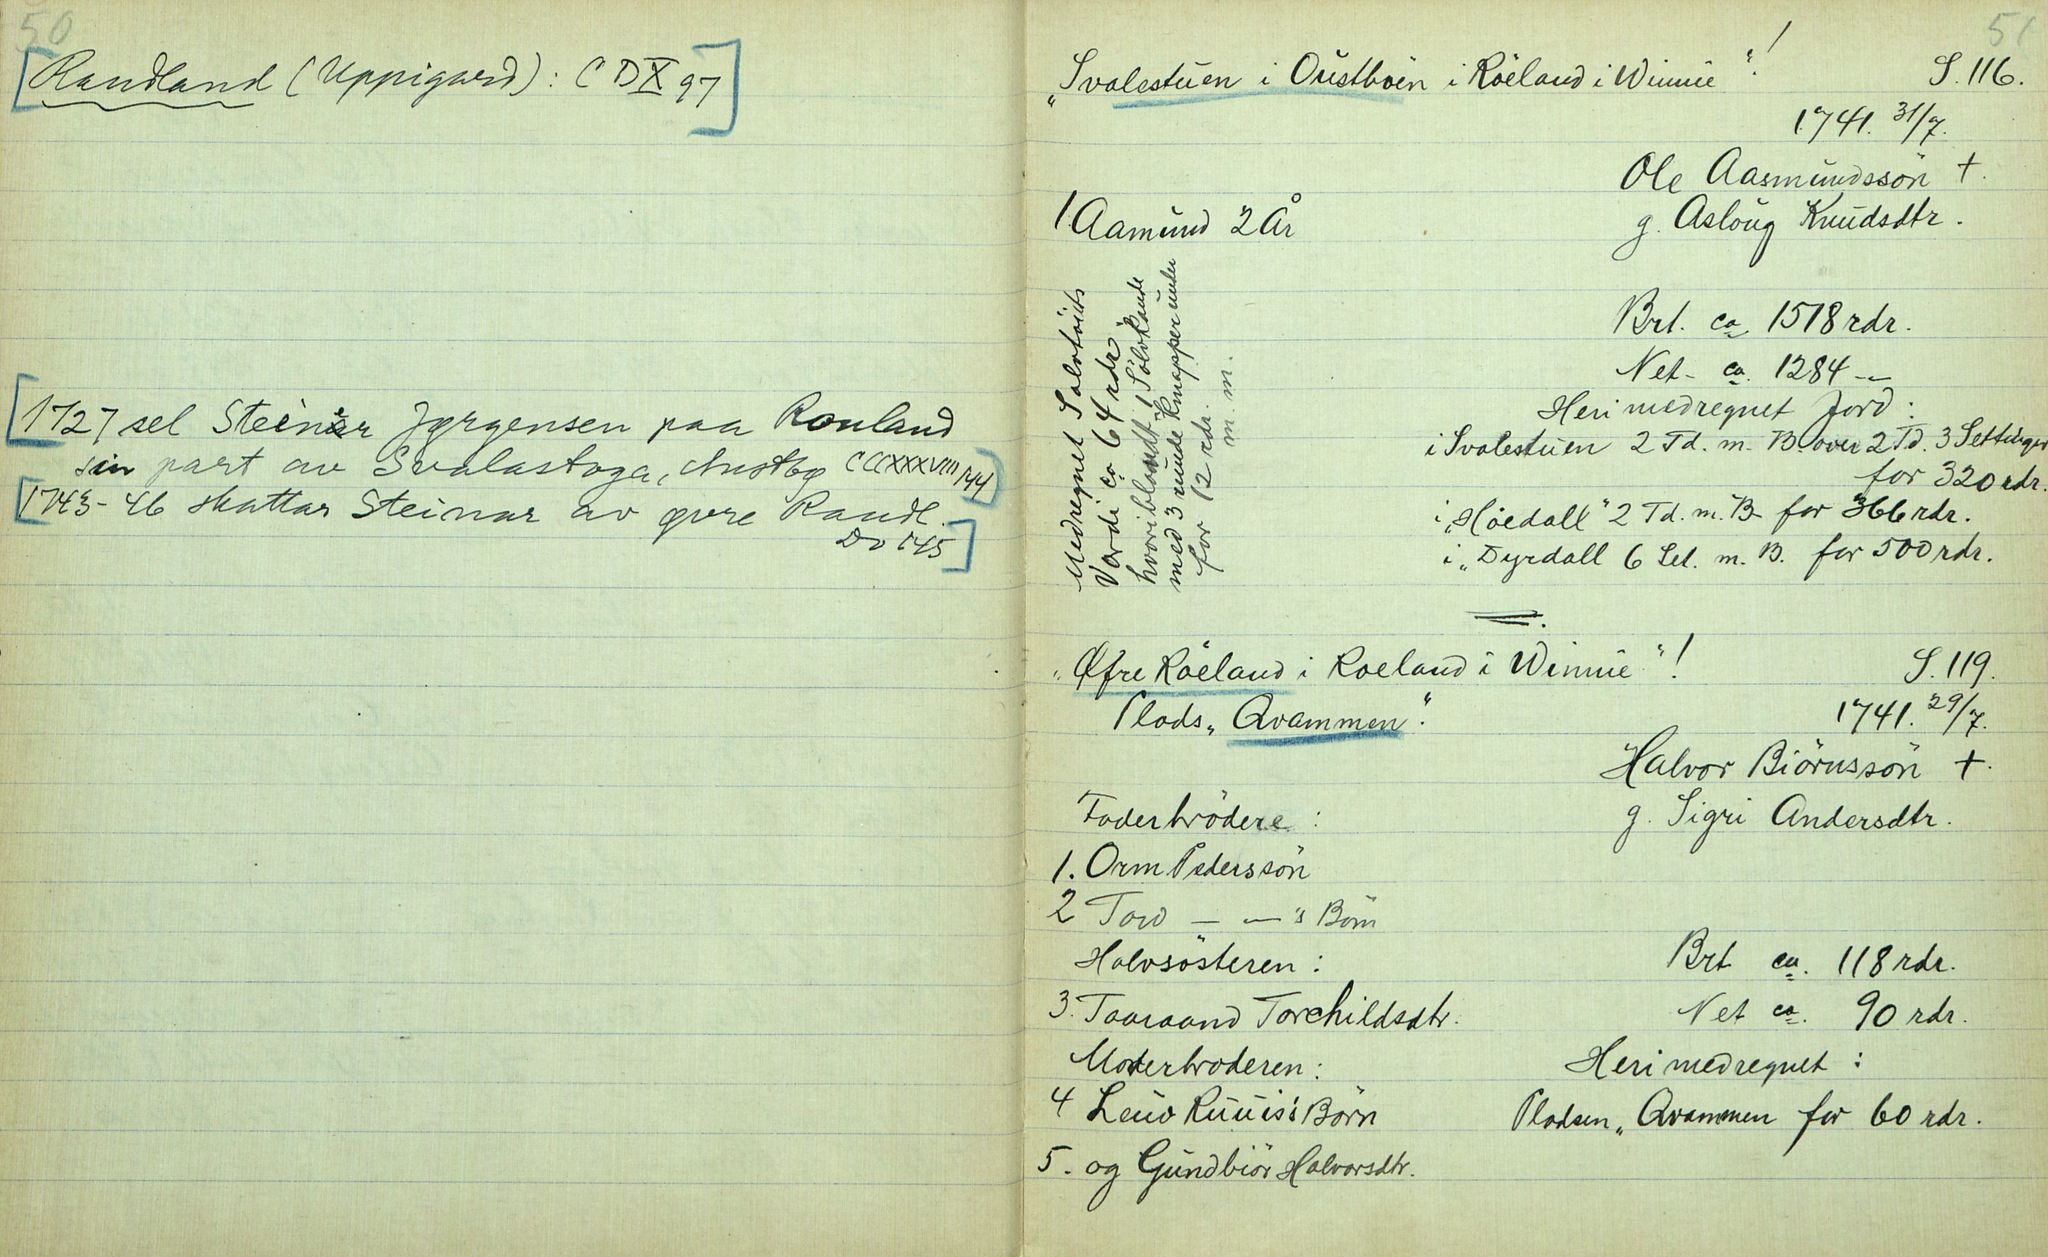 50
[Raudland (Uppigard): C D X 97]
[1727 sel Steinar Jørgensen paa Rauland
sin part av Svalastoga, Austbø CCCXXXVIII 144]
[1743-46 skattar Steinar av øvre Raudl.
Do 145]
51
"Svalestuen i Oustböen i Röeland i Winnie"!
S. 116.
1741. 31/7.
Ole Aasmundssön +.
g. Asloug Knudsdtr.
1. Aamund 2 År
Medregnet Sølvtøiets
Verdi ca 64 rdr
hvoriblandt 1 Sölvkande
med 3 runde Knapper under
for 12 rdr.
m. m.
Brt. ca. 1518 rdr.
Net - ca. 1284 -~
Heri medregnet Jord:
i Svalestuen 2 Td. m. B. over 2 Td. 3 Settinger
for 320 rdr.
i "Höedall" 2 Td. m. B. for 366 rdr.
i "Dyrdall 6 Set. m. B. for 500 rdr.
"Øfre Röeland i Roeland i Winnie"!
S. 119.
Plads "Qvammen".
1741. 29/7.
Halvor Biörnssön +.
g. Sigri Andersdtr.
Faderbrödere:
1. Orm Pederssön
2 Tov — —'s Börn
Halvsösteren:
3. Taaraand Torchildsdtr.
Moderbroderen:
4 Leuv Ruuis's Börn
5. og Gundbiör Halvorsdtr.
Brt ca. 118 rdr.
Net ca. 90 rdr.
Heri medregnet:
Pladsen "Qvammen for 60 rdr.